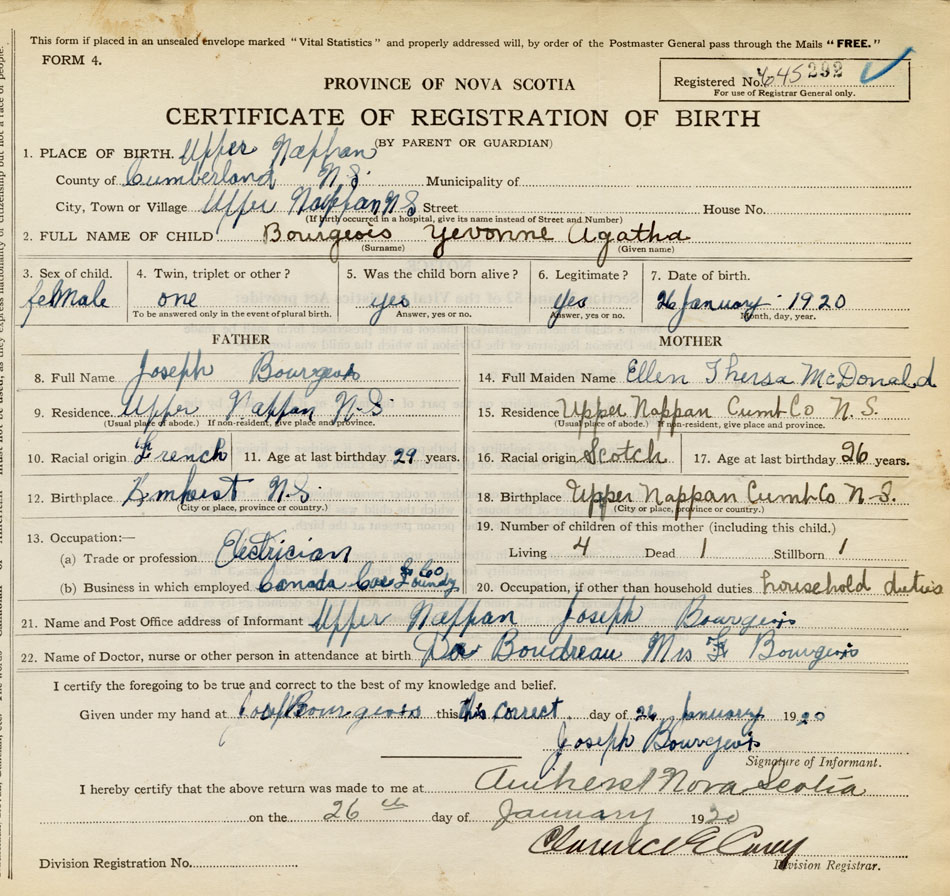 This form if placed in an unsealed envelope marked "Vital Statistics" and properly addressed will, by order of the Postmaster General pass through the Mails "FREE."
FORM 4.
Registered No. 645 292
For use of Registrar General only.
PROVINCE OF NOVA SCOTIA
CERTIFICATE OF REGISTRATION OF BIRTH
(BY PARENT OR GUARDIAN)
1. PLACE OF BIRTH. Upper Nappan
County of Cumberland N S. Municipality of
City, Town or Village Upper Nappan N S Street House No.
(If birth occurred in a hospital, give its name instead of Street and Number)
2. FULL NAME OF CHILD Bourgeois Yevonne Agatha
(Surname) (Given name)
3. Sex of child. 4. Twin, triplet or other? 5. Was the child born alive? 6. Legitimate? 7. Date of birth.
feMale one yes Yes 26 January 1920
To be answered only in the event of plural birth. Answer, yes or no. Answer, yes or no. Month, day, year.
FATHER MOTHER
8. Full Name Joseph Bourgeois 14. Full Maiden Name Ellen Thersa McDonald
9. Residence. Upper Nappan N.S. 15. Residence Upper Nappan Cumb Co N. S.
(Usual place of abode.) If non-resident, give place and province. (Usual place of abode.) If non-resident, give place and province.
10. Racial origin French 11. Age at last birthday 29 years. 16. Racial origin Scotch 17. Age at last birthday 26 years.
12. Birthplace N.S. 18. Birthplace Upper Nappan Cumb Co N-S.
(City or place, province or country.) (City or place, province or country.)
13. Occupation:— 19. Number of children of this mother (including this child.)
(a) Trade or profession Electrician Living 4 Dead 1 Stillborn 1
(b) Business in which employed Canada Car Co 20. Occupation, if other than household duties household duties
21. Name and Post Office address of Informant Upper Nappan Joseph Bourgeois
22. Name of Doctor, nurse or other person in attendance at birth Boudreau Mrs F Bourgeois
I certify the foregoing to be true and correct to the best of my knowledge and belief.
Given under my hand at Bourgeois this this correct day of 26 January 1920
Joseph Bourgeois
Signature of Informant.
I hereby certify that the above return was made to me at Amherst Nova Scotia
on the 26th day of January 1920
Clarence E Carey
Division Registration No. Division Registrar.